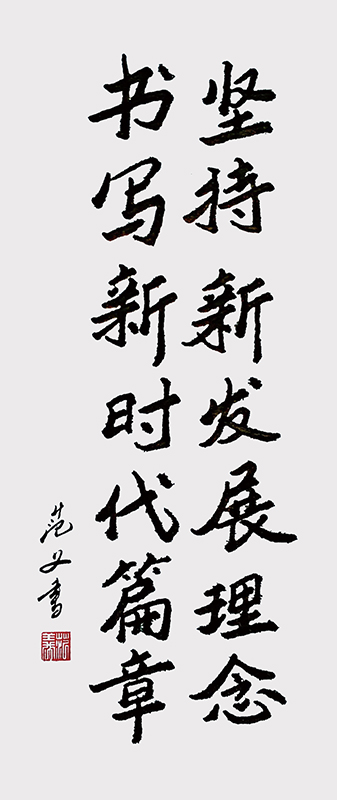 坚持新发展理念
书写新时代篇章
范义書